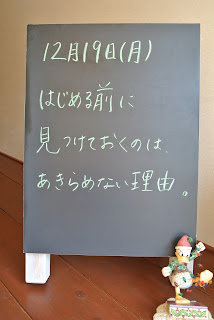 12月19日(月)
はじめる前に
見つけておくのは、
あきらめない理由。